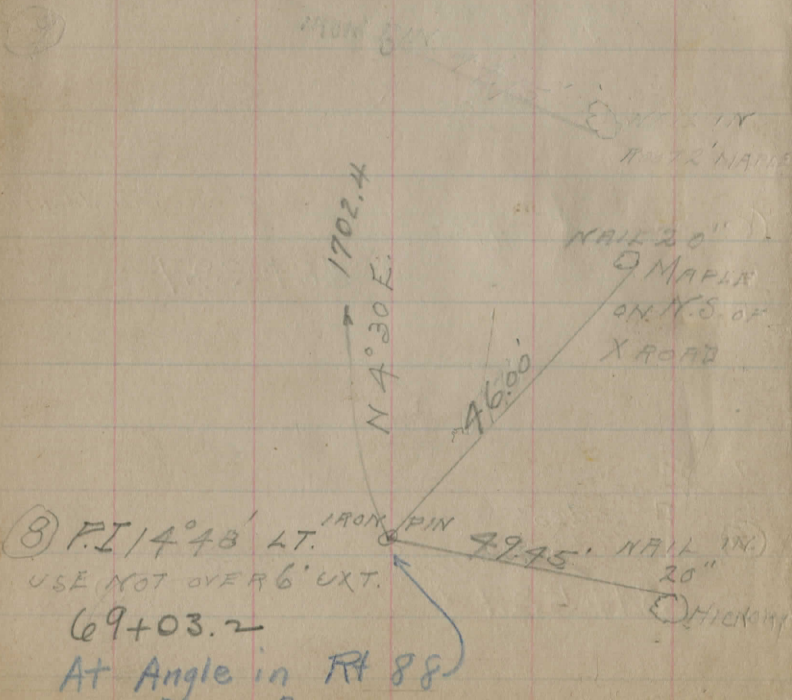 IRON PIN
MAPLE
1702.4
N 4°30 E.
NAIL 20"
MAPLE
ON N.S. OF
X ROAD
46.00'
8 P.I 14°48' LT.
IRON PIN
49.45'
NAIL IN
20"
HICKORY
USE NOT OVER 6' EXT.
69+03.2
At Angle in Rt 88